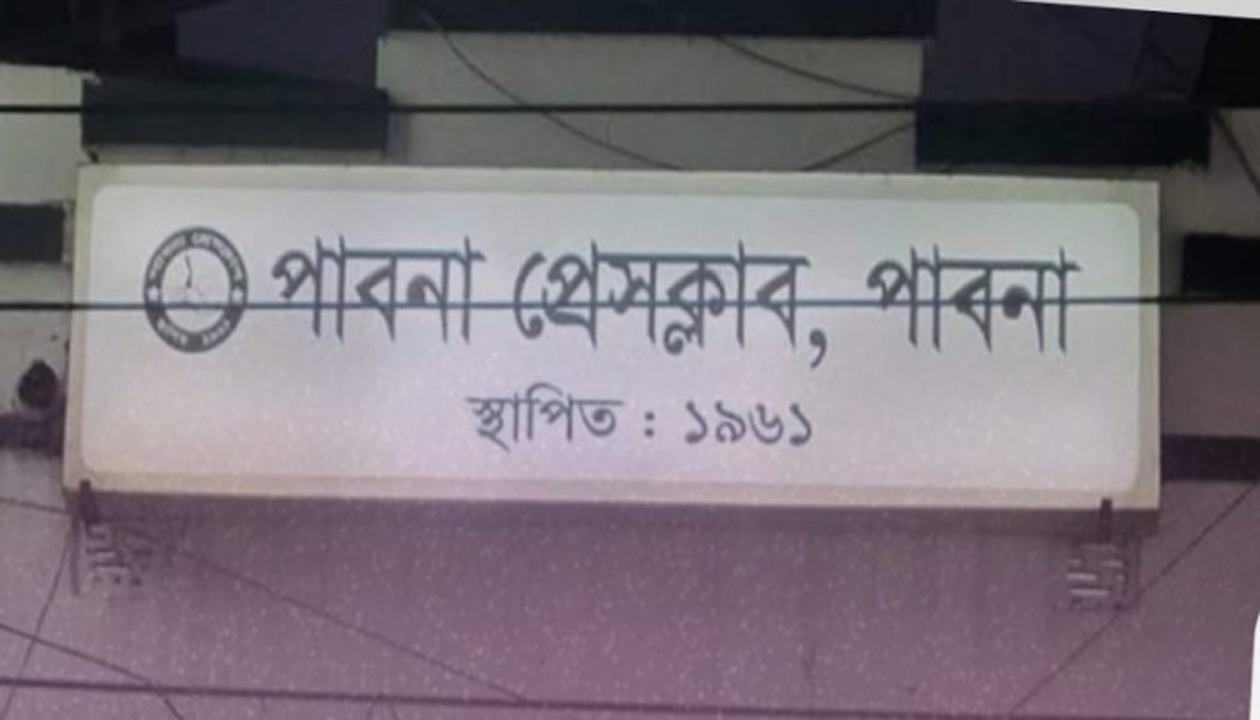 পাবনা প্রেসক্লাব, পাবনা
স্থাপিত : ১৯৬১